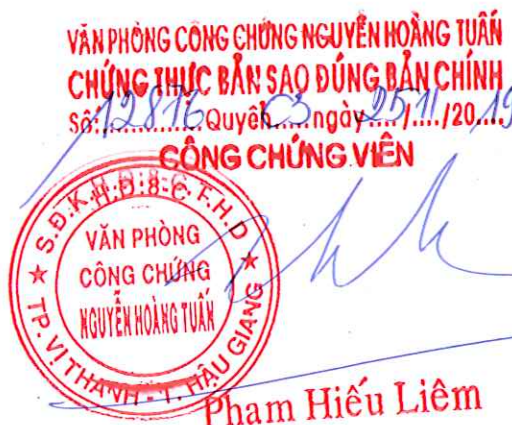 VĂN PHÒNG CÔNG CHỨNG NGUYỄN HOÀNG TUẤN
CHỨNG THỰC BẢN SAO ĐÚNG BẢN CHÍNH
Số: 12876 Quyển C3 ngày 25/11/2019
CÔNG CHỨNG VIÊN
S.Đ.K.H.Đ:8-C.T.H.D
VĂN PHÒNG
CÔNG CHỨNG
NGUYỄN HOÀNG TUẤN
TP. VỊ THANH - T. HẬU GIANG
Phạm Hiếu Liêm